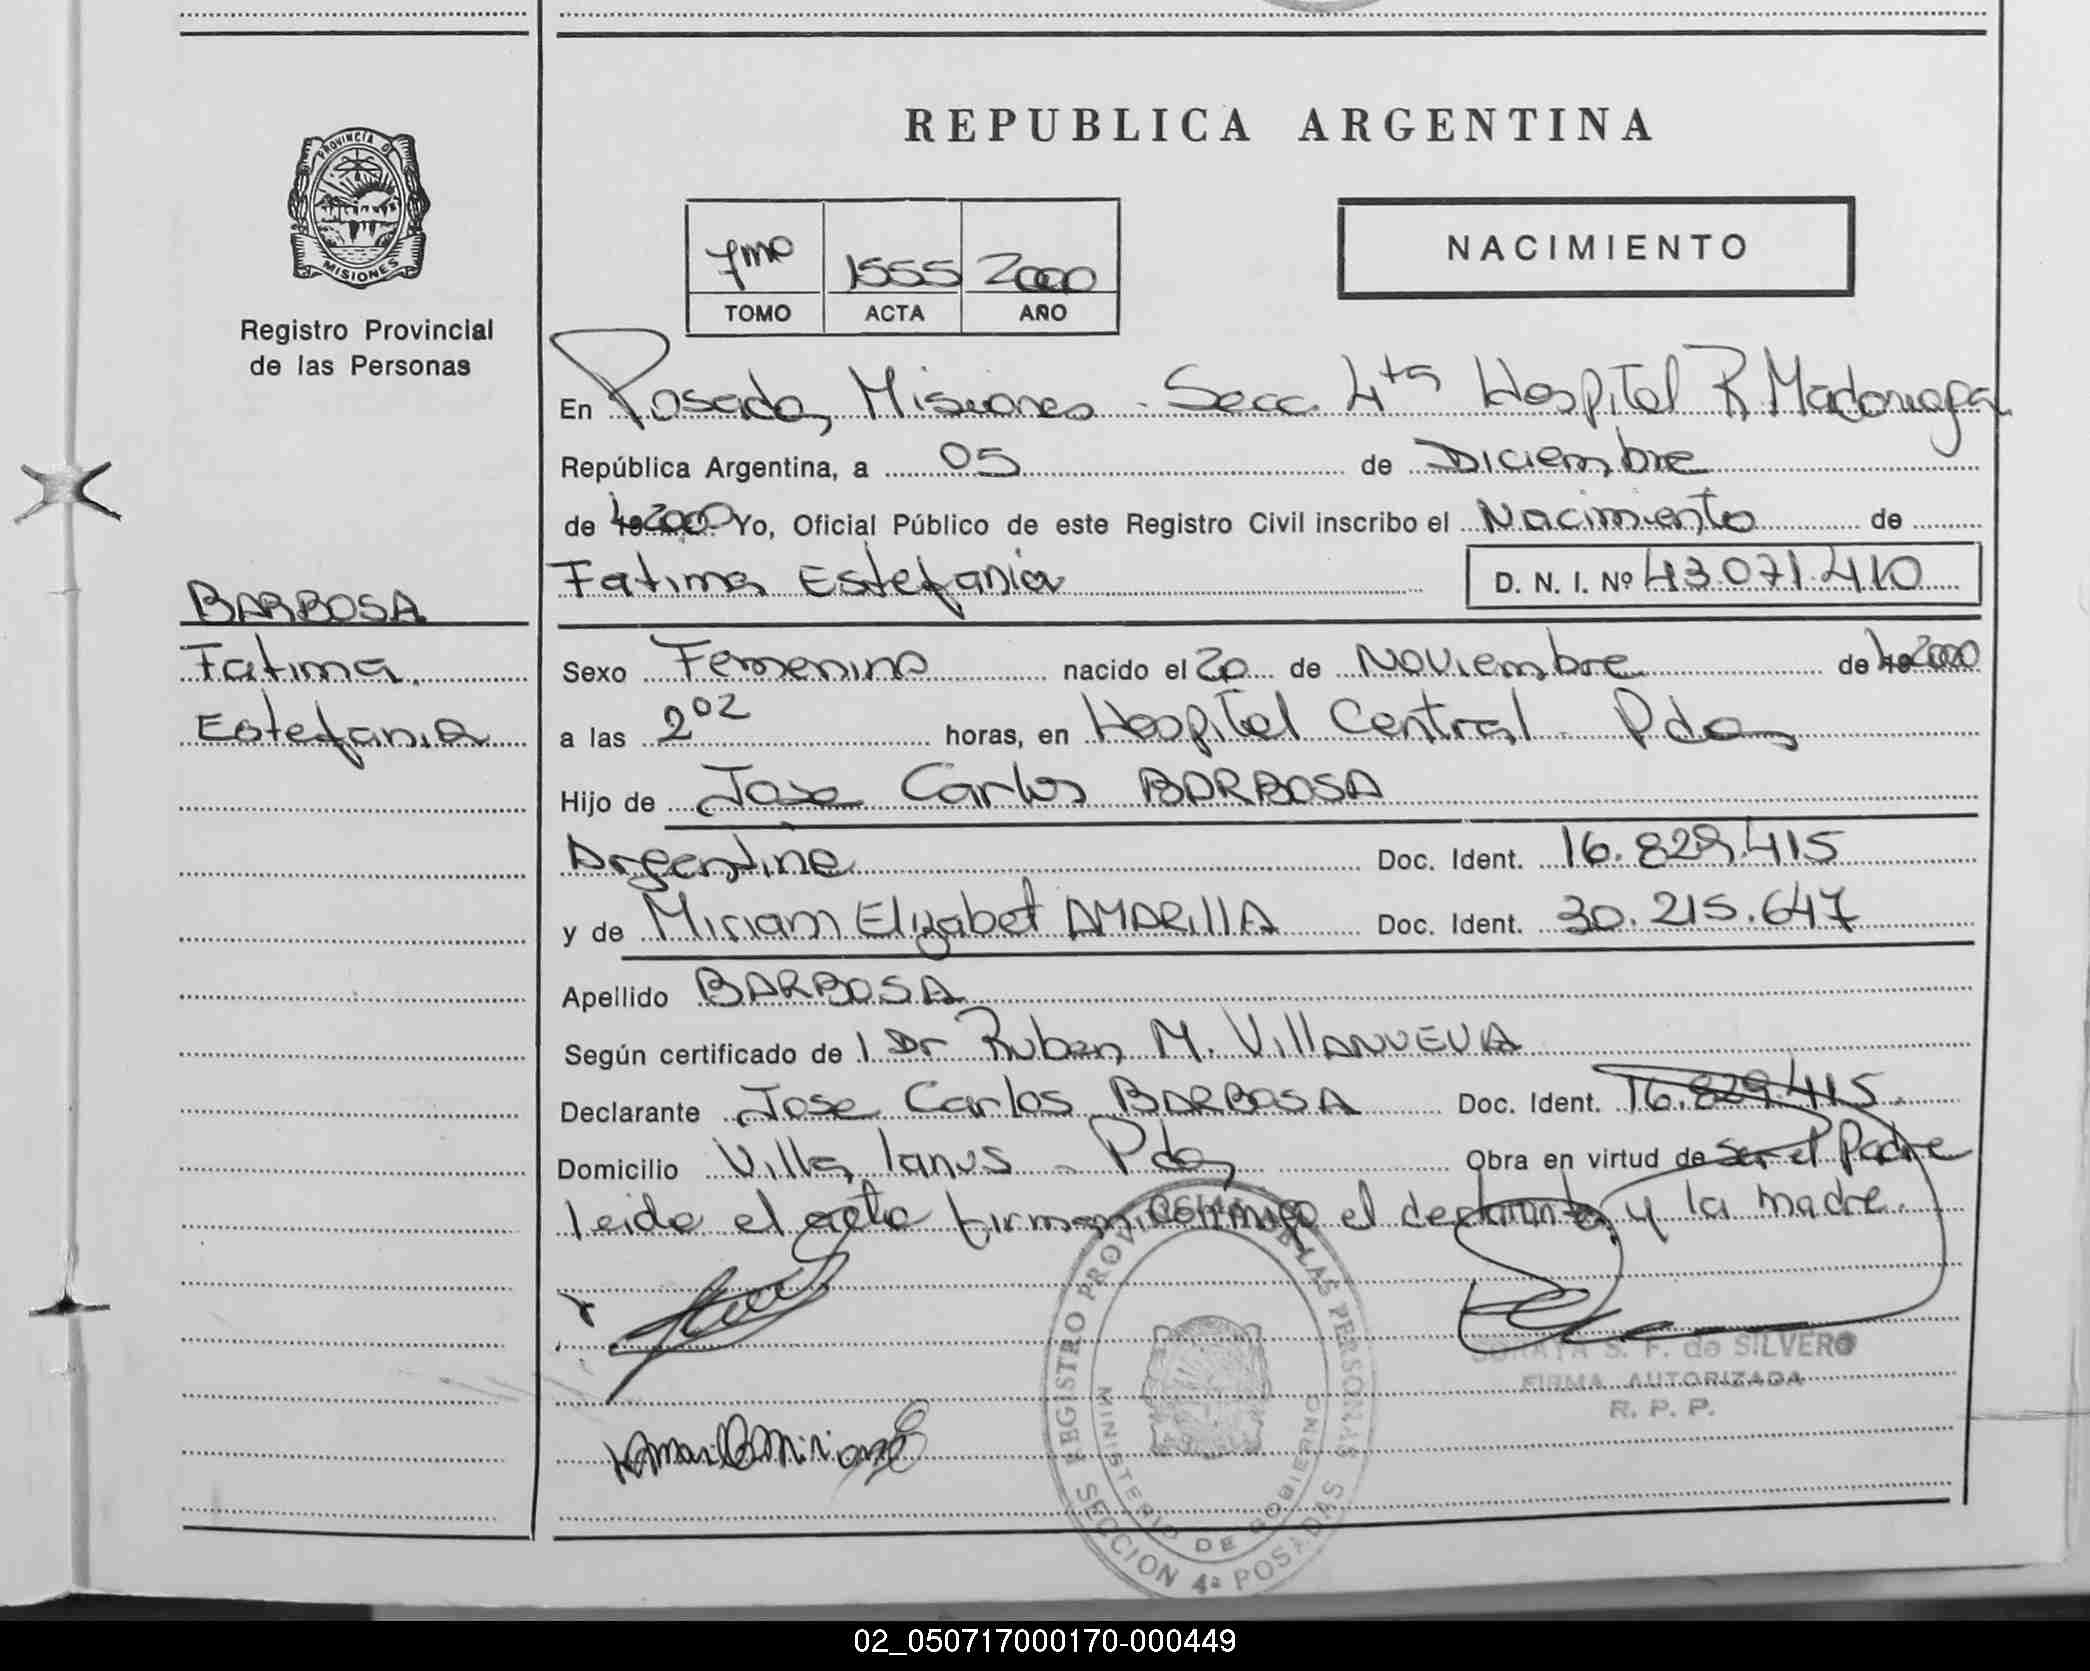 REPUBLICA ARGENTINA
PROVINCIA D
MISIONES
Registro Provincial
de las Personas
NACIMIENTO
7mo 1555 2000
TOMO ACTA AÑO
En Posadas, Misiones - Secc. 4ta Hospital R Madariaga
República Argentina, a 05 de Diciembre
de 2000 Yo, Oficial Público de este Registro Civil inscribo el Nacimiento de
Fatima Estefania D. N. I. Nº 43.071.410
BARBOSA
Fatima
Estefania
Sexo Femenino nacido el 20 de Noviembre de 2000
a las 2 02 horas, en Hospital Central - Pdas
Hijo de Jose Carlos BARBOSA
Argentino Doc. Ident. 16.829.415
y de Miriam Elizabet AMARILLA Doc. Ident. 30.215.647
Apellido BARBOSA
Según certificado de l Dr Ruben M. VILLANUEVA
Declarante Jose Carlos BARBOSA Doc. Ident. 16.829.415
Domicilio Villa Lanus - Pdas Obra en virtud de ser el Padre
leida el acta firman conmigo el declarante y la madre.
REGISTRO PROVINCIAL DE LAS PERSONAS
MINISTERIO DE GOBIERNO
SECCION 4ª POSADAS
SORAYA S. F. de SILVERO
FIRMA AUTORIZADA
R. P. P.
Amarilla Miriam E
02_050717000170-000449